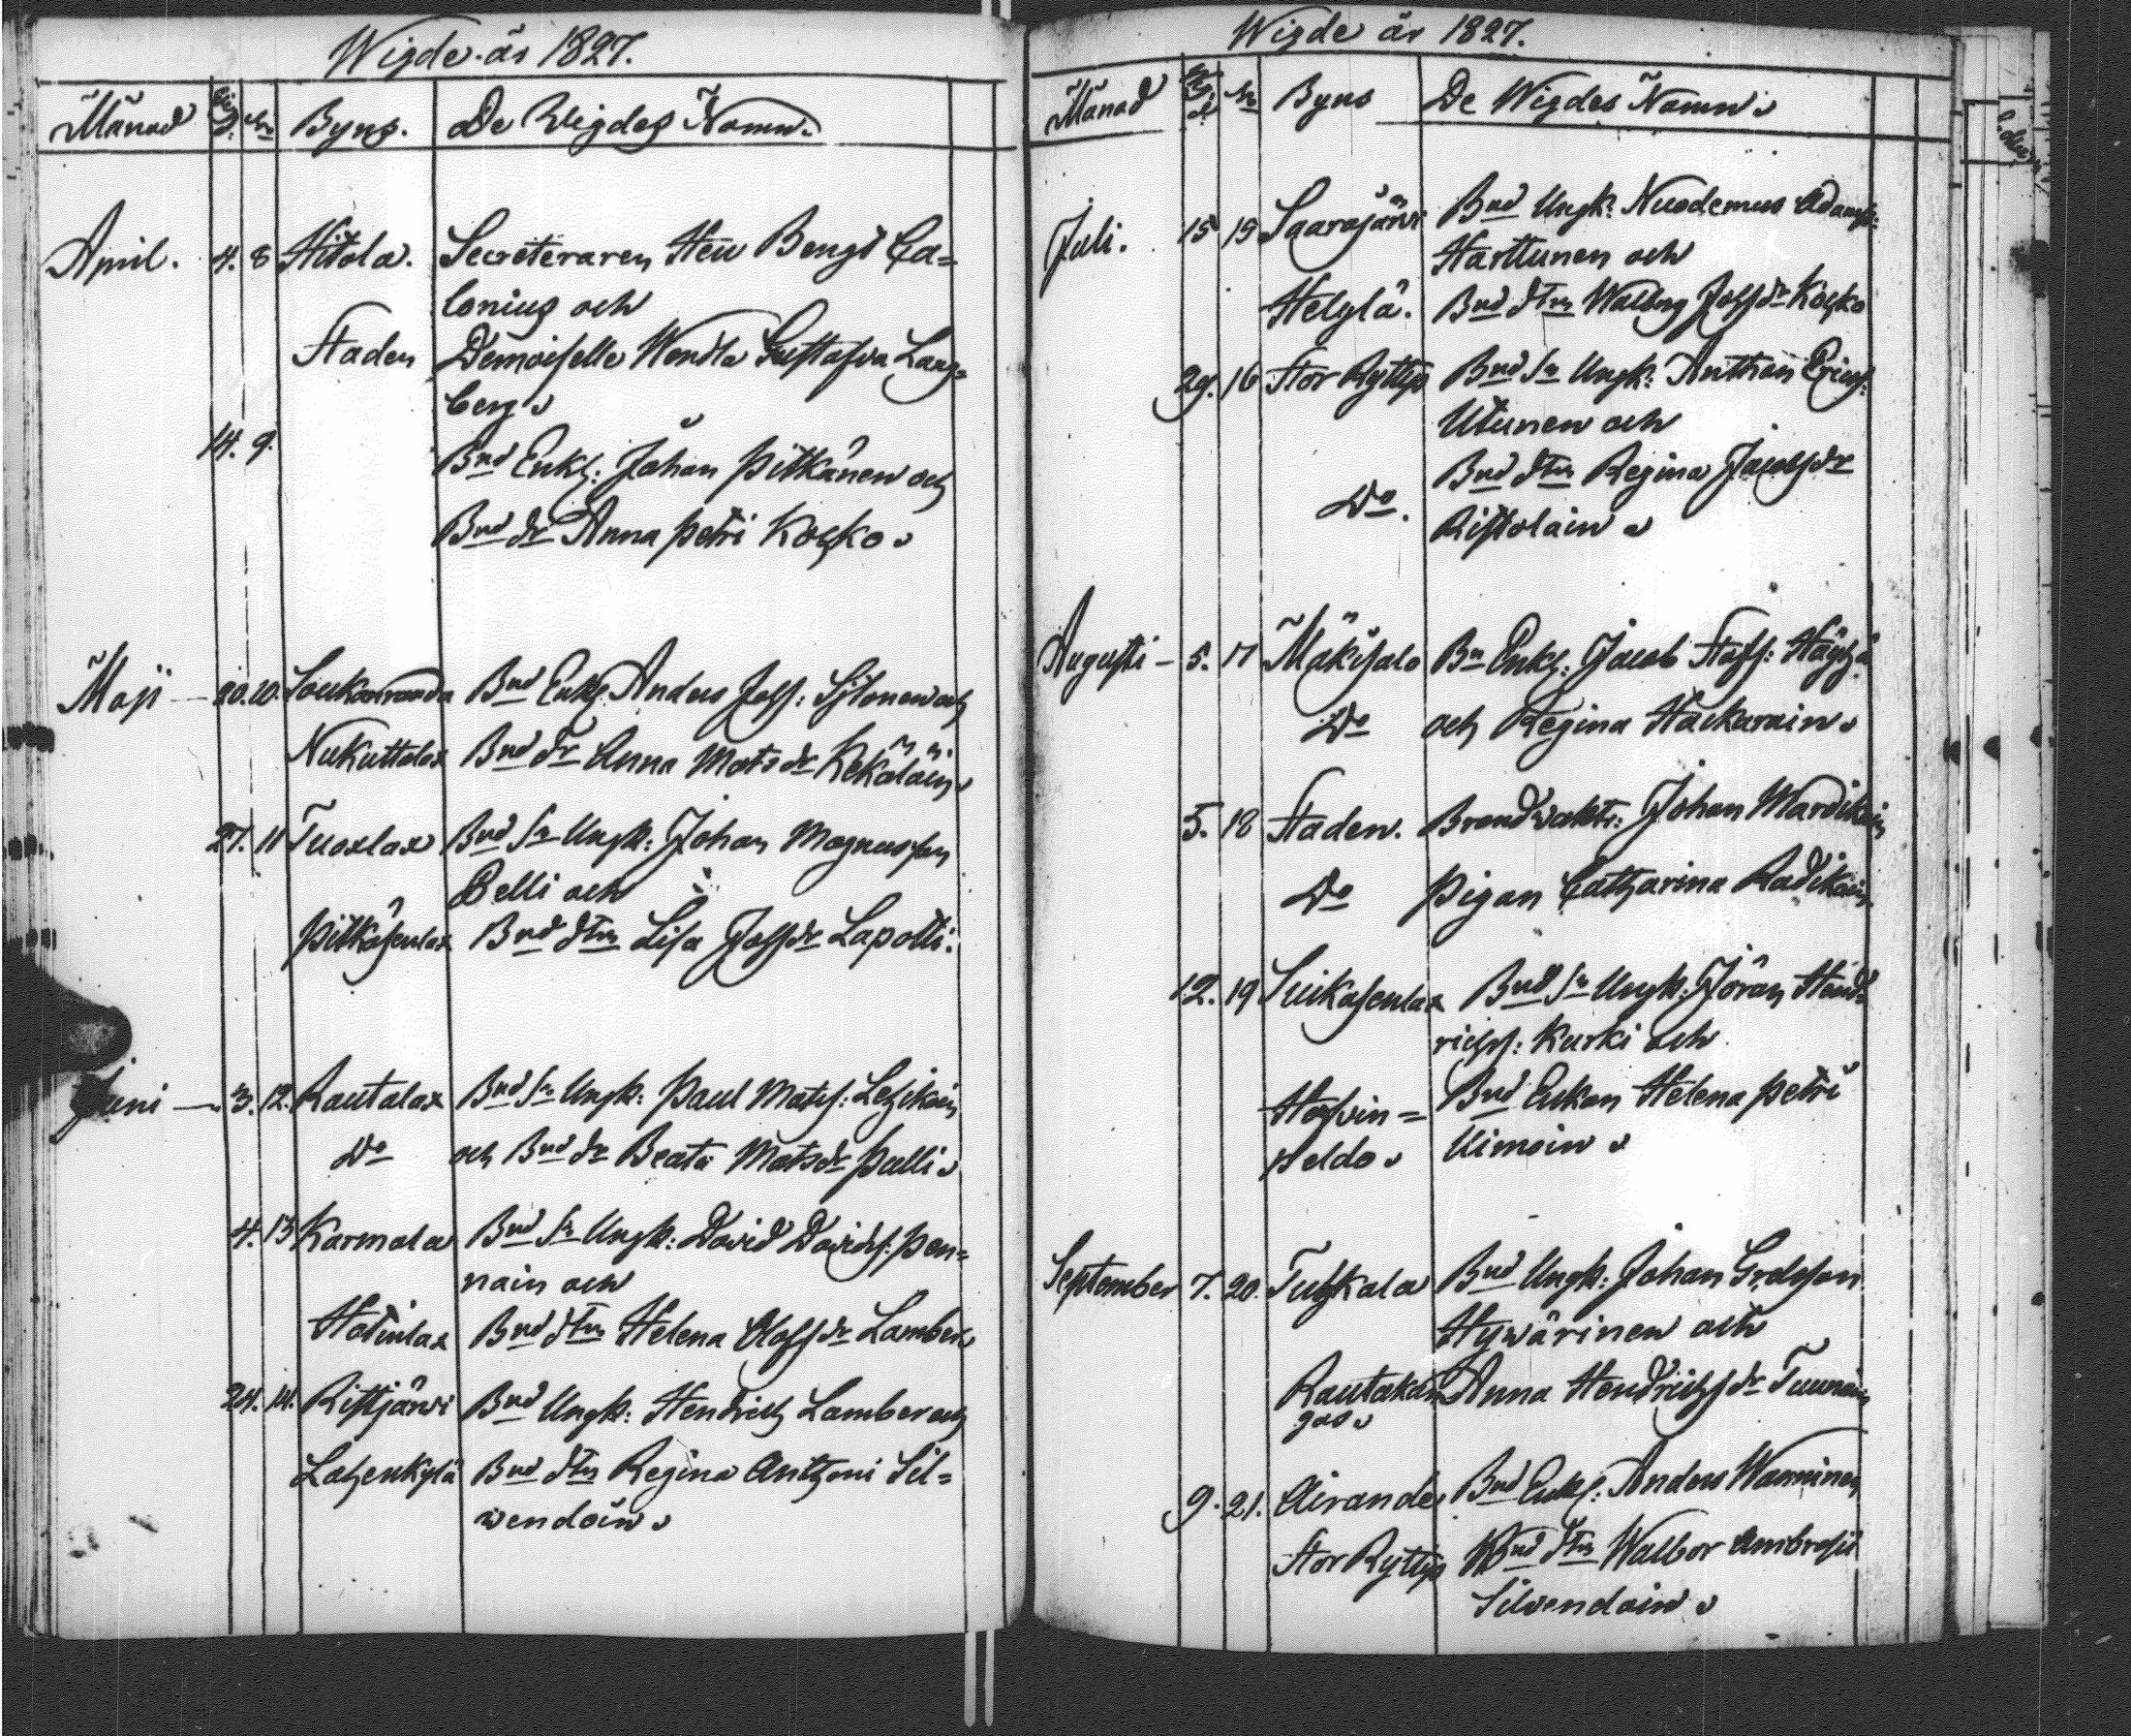 Wigde år 1827.
Månad Wigd. d. No Byns. De Wigdes Namn.
April. 4. 8 Hitola. Secreteraren Herr Bengt Ca=
lonius och
Staden Demoiselle Wendla Gustafva Lang=
berg
14. 9. Bnd Enkl: Johan Pitkänen och
Bnd dr Anna Petri Kocko
Maji 20. 10. Soukanranda Bnd Enkl: Anders Jofs: Sijtonen och
Nukuttalax Bnd Dr Anna Mats dr Kekäläin
27. 11 Tuoxlax Bnd Sn Ungk: Johan Magnusson
Belli och
Pitkäsenlax Bnd dtrn Lisa Jofsdr Lapotti.
Juni 3. 12. Rautalax Bnd Sn Ungk: Paul Matss: Lehikoin
Do och Bnd dr Beata Matsdr Pulli
4. 13 Karmala Bnd Sn Ungk: David Davidss: Pen=
nain och
Hotinlax Bnd dtrn Helena Olofsdr Lamber
24. 14. Ristjärvi Bnd Ungk: Hendrich Lamber och
Lahenkylä Bnd dtrn Regina Anthoni Sil=
vendoin
Wigde år 1827.
Månad No Byns De Wigdes Namn
Juli. 15 15 Saarajärvi Bnd Ungk: Nicodemus Adamss:
Harttunen och
Helylä. Bnd dtrn Walborg Jofsdr Kocko
29. 16 Stor Ryttys Bnd Sn Ungk: Anthon Ericss:
Utunen och
Do. Bnd dtrn Regina Jacobsdr
Ristolain
Augusti 5. 17 Mäkisalo Bn Enkl: Jacob Staffs: Häyhä
Do och Regina Hackarain
5. 18 Staden. Brandvakts: Johan Wardikain
Do Pigan Catharina Radikain
12. 19 Suikasenlax Bnd Sn Ungk: Jöran Hend=
richss: Kurki och
Hafvin= Bnd Enkan Helena Petri
peldo Uimoin
September 7. 20. Tuhkala Bnd Ungk: Johan Grelsson
Hyvärinen och
Rautakan Anna Hendrichsdr Tuunain
gas
9. 21. Airande Bnd Enkl: Anders Wänninen
Stor Ryttys Bnd dtrn Walbor Ambrosii
Silvendoin